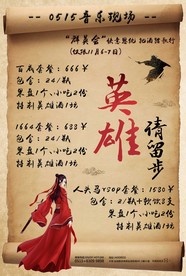 -- 0515音乐现场 --
"群英会"
(仅限11月6-7日)
英雄
请留步
百威套餐：666￥
包含：24/瓶
果盘1个、小吃2份
特制英雄酒1坛
1664套餐：888￥
包含：24/瓶
果盘1个、小吃2份
特制英雄酒1坛
人头马VSOP套餐：1580￥
包含：2/瓶+软饮8支
果盘1个、小吃2份
特制英雄酒1坛